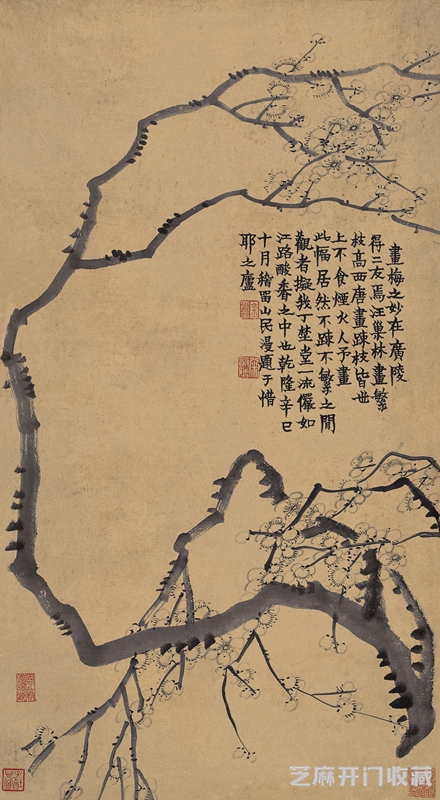 畫梅之妙在廣陵
得二友焉汪巢林畫繁
枝高西唐畫踈枝皆世
上不食煙火人予畫
此幅居然不踈不繁之間
觀者擬我丁埜堂一流儼如
江路酸香之中也乾隆辛巳
十月稽留山民漫題于惜
耶之廬
芝麻开门收藏